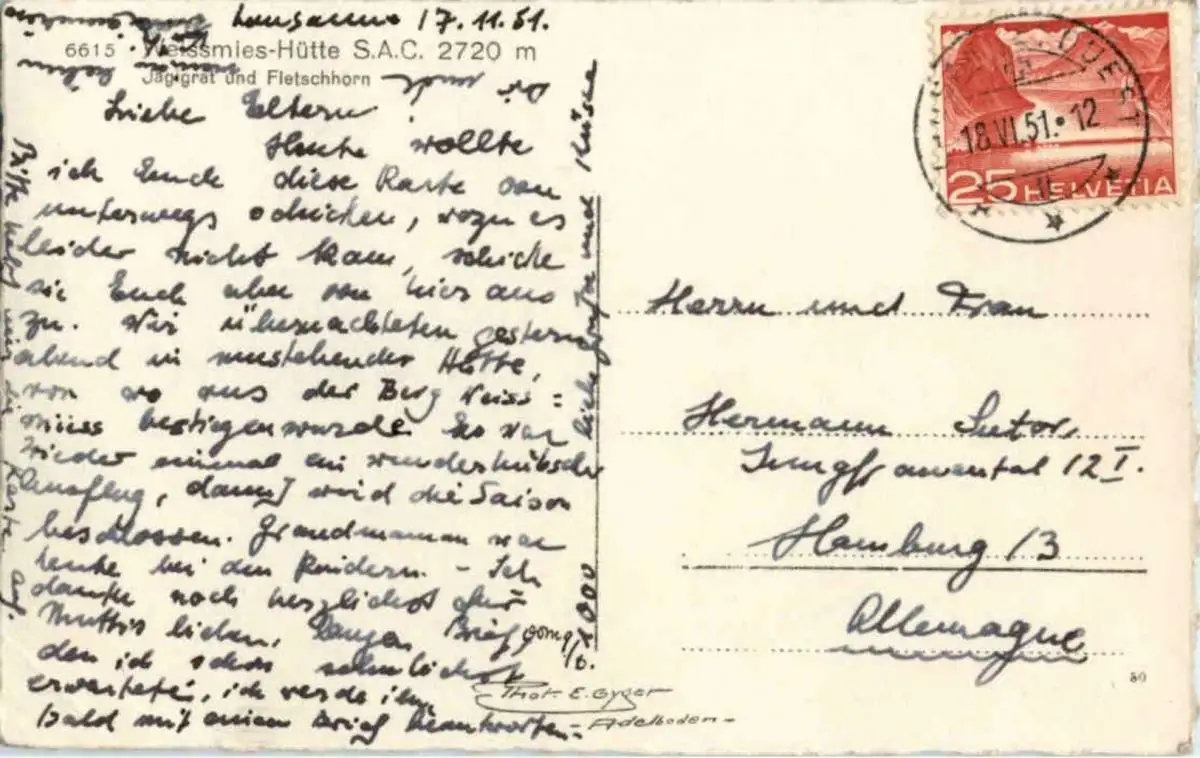 Lausanne 17.11.51.
6615 Weissmies-Hütte S.A.C. 2720 m
Jägigrat und Fletschhorn
Liebe Eltern!
Heute wollte
ich Euch diese Karte von
unterwegs schicken, wozu es
leider nicht kam, schicke
sie Euch aber von hier aus
zu. Wir übernachteten gestern
abend in umstehender Hütte,
von wo aus der Berg Weiss=
mies bestiegen wurde. Es war
wieder einmal ein wunderhübscher
Ausflug, damit wird die Saison
beschlossen. Grandmaman war
heute bei den Kindern. - Ich
danke noch herzlichst für
Muttis lieben, langen Brief
den ich schon sehnlichst
erwartete, ich werde ihn
bald mit einem Brief beantworten.-
Bitte hebt mir die Karte auf.
und Küsse
1000
HELVETIA
25
18.VI.51.-12
Herrn und Frau
Hermann Sutor,
Jungfrauental 12 I.
Hamburg 13
Allemagne
Phot. E. Gyger
Adelboden
50